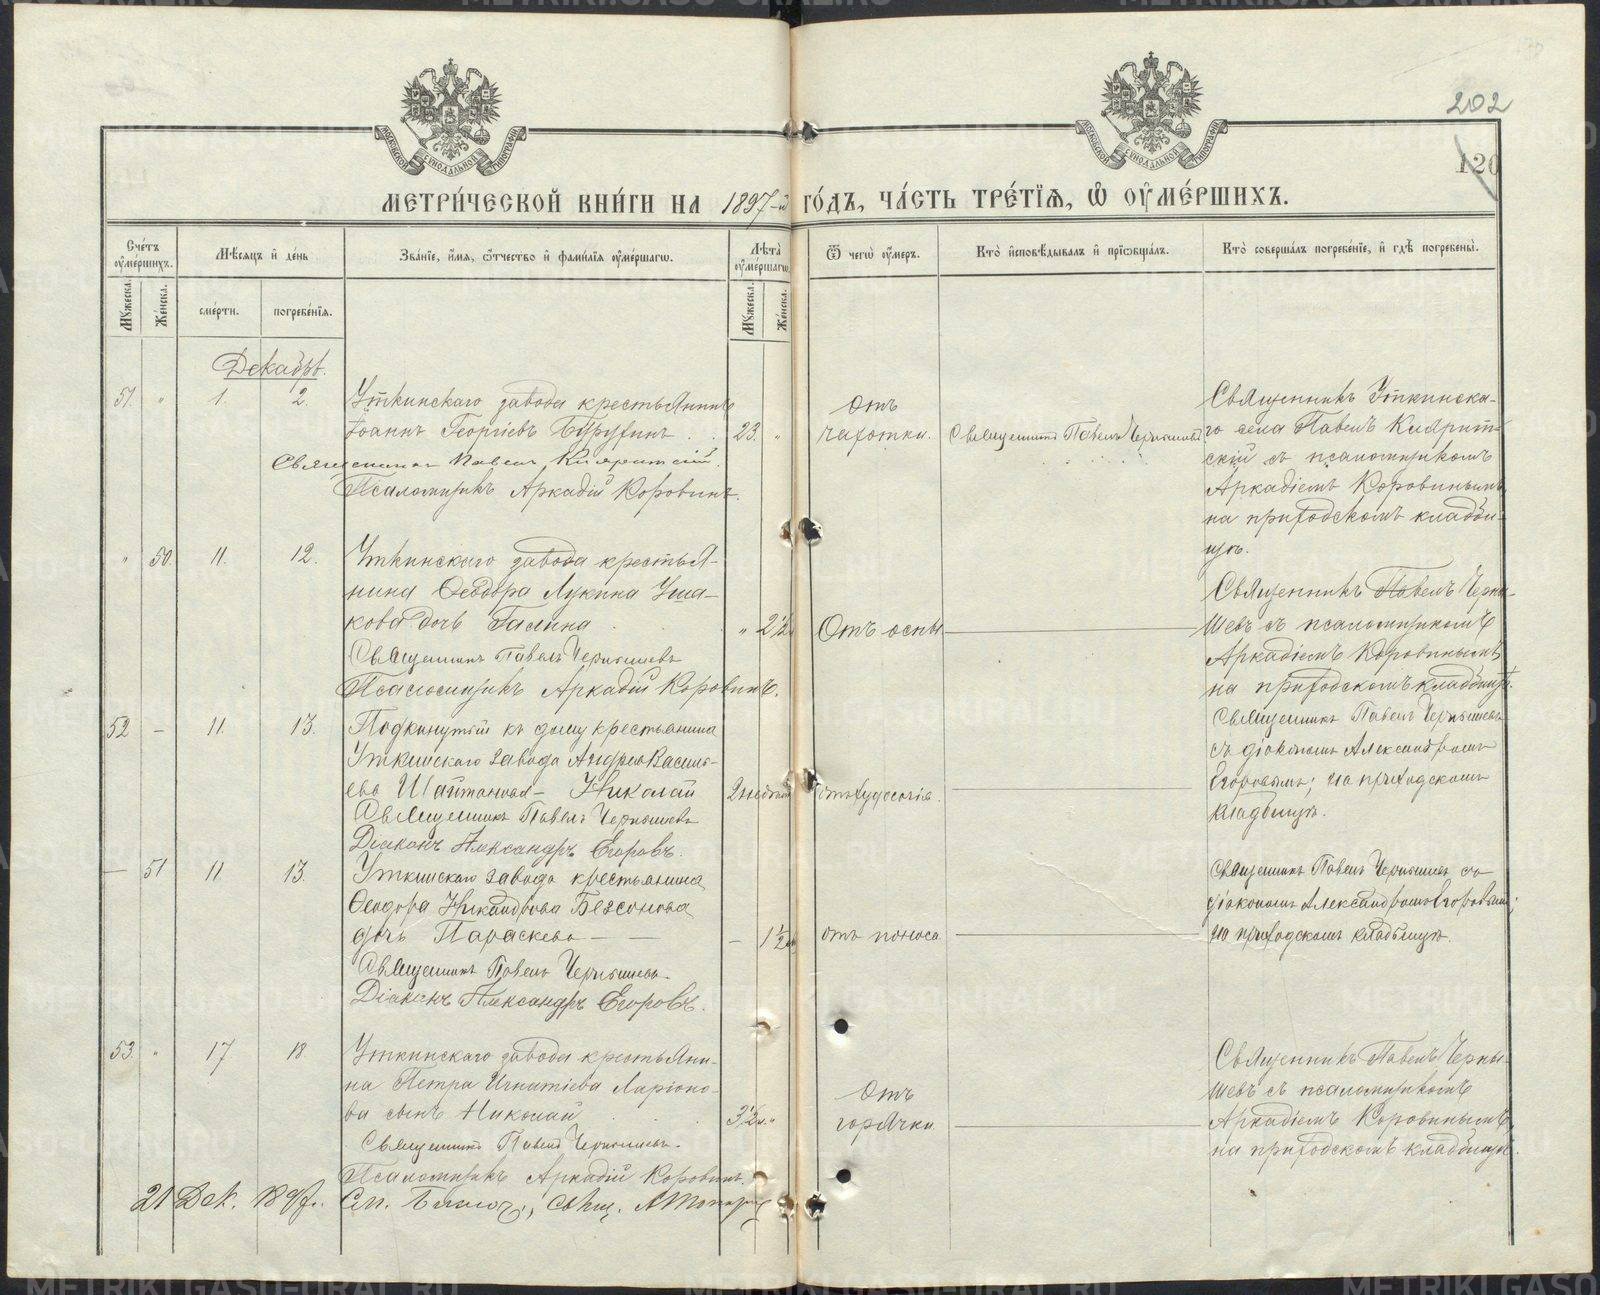 202
120
МОСКОВСКОЙ СѴНОДАЛЬНОЙ ТИПОГРАФІИ
МОСКОВСКОЙ СѴНОДАЛЬНОЙ ТИПОГРАФІИ
МЕТРИ́ЧЕСКОЙ КНИ́ГИ НА 1897-й ГО́ДЪ, ЧА́СТЬ ТРЕ́ТІѦ, Ѽ ОУ҆МЕ́РШИХЪ.
Сче́тъ оу҆ме́ршихъ.
Мѣ́сяцъ и҆ де́нь
Зва́нїе, и҆́мѧ, ѻ҆́тчество и҆ фами́лїѧ оу҆ме́ршагѡ.
Лѣ́та оу҆ме́ршагѡ.
Ѿ чегѡ̀ оу҆́меръ.
Кто̀ и҆сповѣ́дывалъ и҆ прїѡбща́лъ.
Кто̀ соверша́лъ погребе́нїе, и҆ гдѣ̀ погребены̀.
Му́жеска.
Же́нска.
сме́рти.
погребе́нїѧ.
Му́жеска.
Же́нска.
Декабрь.
51. " 1. 2. Уткинскаго завода крестьянинъ
Іоаннъ Георгіевъ Бурухинъ . . 23. "
Священникъ Павелъ Кляритскій.
Псаломщикъ Аркадій Коровинъ.
Отъ
чахотки.
Священникъ Павелъ Чернышевъ
Священникъ Уткинска-
го села Павелъ Клярит-
скій съ псаломщикомъ
Аркадіемъ Коровинымъ
на приходскомъ кладби-
щѣ.
" 50. 11. 12. Уткинскаго завода крестья-
нина Ѳеодора Лукина Уша-
кова дочь Галина . . " 2½
Священникъ Павелъ Чернышевъ
Псаломщикъ Аркадій Коровинъ.
Отъ оспы
Священникъ Павелъ Черны-
шевъ съ псаломщикомъ
Аркадіемъ Коровинымъ
на приходскомъ кладбищѣ.
52 – 11. 13. Подкинутый къ дому крестьянина
Уткинскаго завода Андрея Василь-
ева Шайтанова – Николай
Священникъ Павелъ Чернышевъ
Діаконъ Александръ Егоровъ.
отъ худосочія.
Священникъ Павелъ Чернышевъ
съ діакономъ Александромъ
Егоровымъ; на приходскомъ
кладбищѣ.
– 51 11 13. Уткинскаго завода крестьянина
Ѳеодора Никандрова Безсонова
дочь Параскева – – 1½
Священникъ Павелъ Чернышевъ.
Діаконъ Александръ Егоровъ.
отъ поноса
Священникъ Павелъ Чернышевъ съ
діакономъ Александромъ Егоровымъ;
на приходскомъ кладбищѣ.
53. " 17 18. Уткинскаго завода крестьяни-
на Петра Игнатіева Ларіоно-
ва сынъ Николай . . 3½ м. "
Священникъ Павелъ Чернышевъ.
Псаломщикъ Аркадій Коровинъ.
Отъ
горячки
Священникъ Павелъ Черны-
шевъ съ псаломщикомъ
Аркадіемъ Коровинымъ
на приходскомъ кладбищѣ.
21 Дек. 1897 г.
METRIKI.GASO-URAL.RU